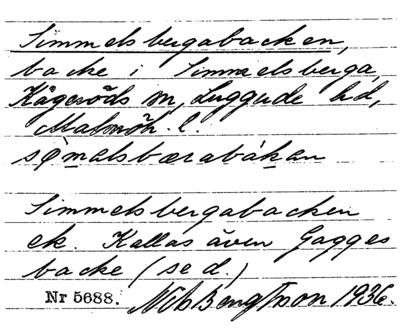 Simmelsbergabacken,
backe i Simmelsberga,
Kågeröds sn, Luggude hd,
Malmöh. l.
sømalsbærabákan
Simmelsbergabacken
ek. Kallas även Gagges
backe (se d.)
Nr 5688. Nils Bengtsson 1936.